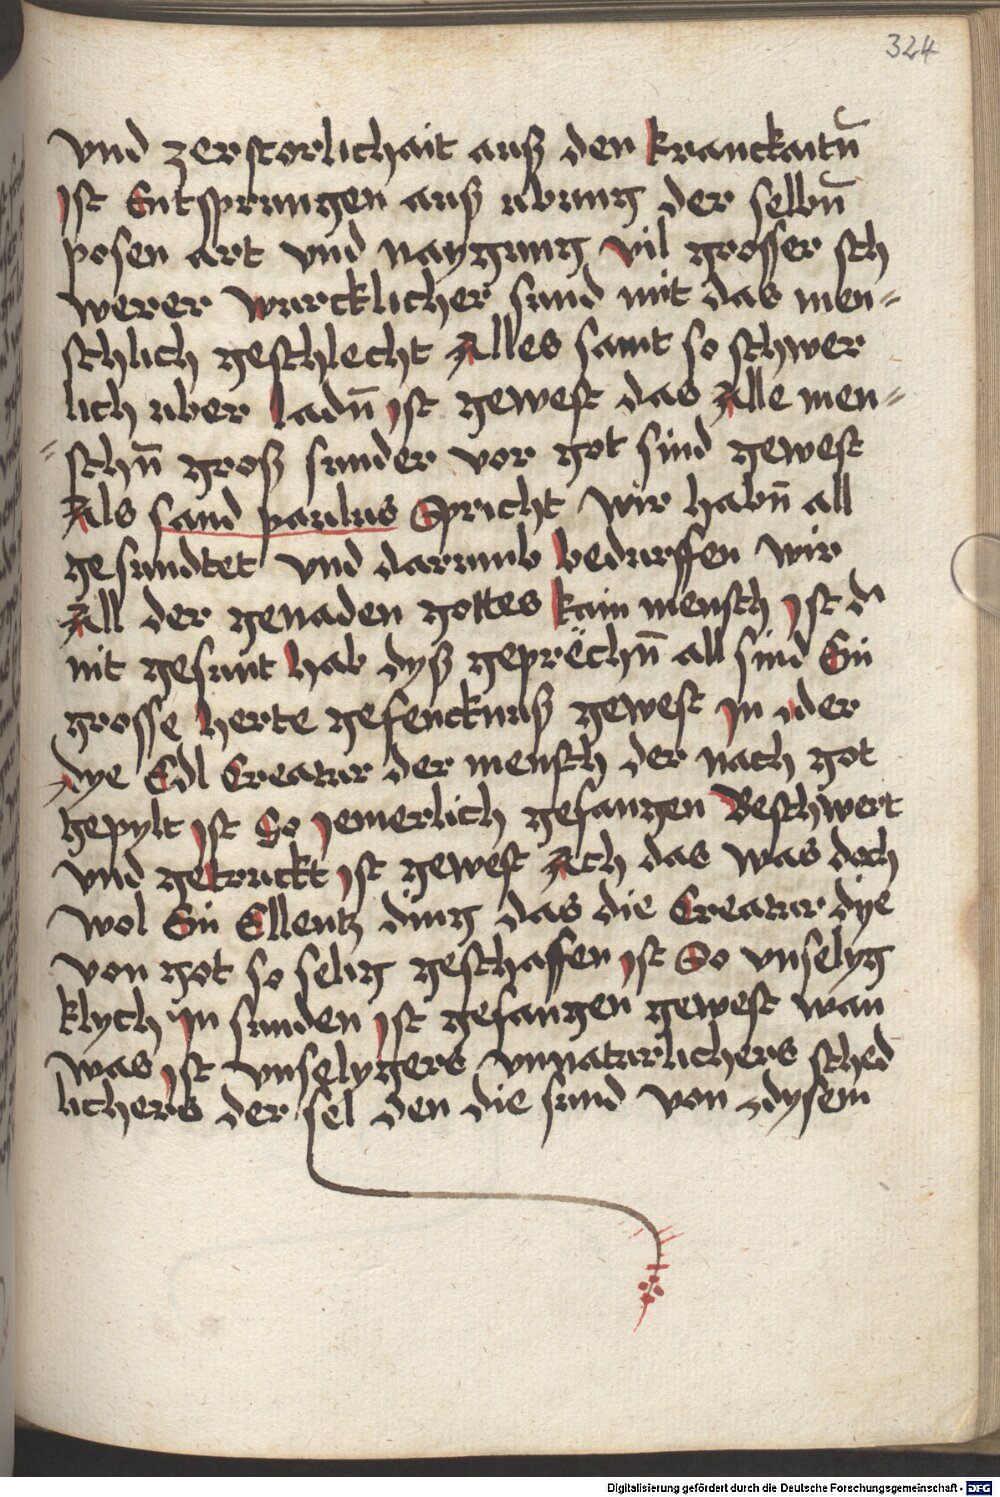 324
vnd zerstorlichait auß den kranckaitn̄
ist Entsprungen auß ubung der selbn̄
posen art vnd naygung vil grosser sch
werer wurcklicher sund mit das men-
schlich geschlecht Alles samt so schwer
lich uber ladn̄ ist gewest das Alle men-
schn̄ groß sunder vor got sind gewest
Als sand paulus Spricht wir habn̄ all
gesundtet vnd darumb bedurffen wir
All der genaden gottes kain mensch ist d'
nit gesunt hab dyß geprëchn̄ all sind Ein
grosse herte gefencknuß gewest in der
dye Edl Creatur der mensch der nach got
gepylt ist So iemerlich gefangen Beschwert
vnd getruckt ist gewest Ach das was doch
wol Ein Ellentz ding das die Creatur dye
von got so selig geschaffen ist So vnselyg
klych in sunden ist gefangen gewest wan
was ist vnselygers vnnaturlichers sched
lichers der sel den die sund von dysem
Digitalisierung gefördert durch die Deutsche Forschungsgemeinschaft - DFG